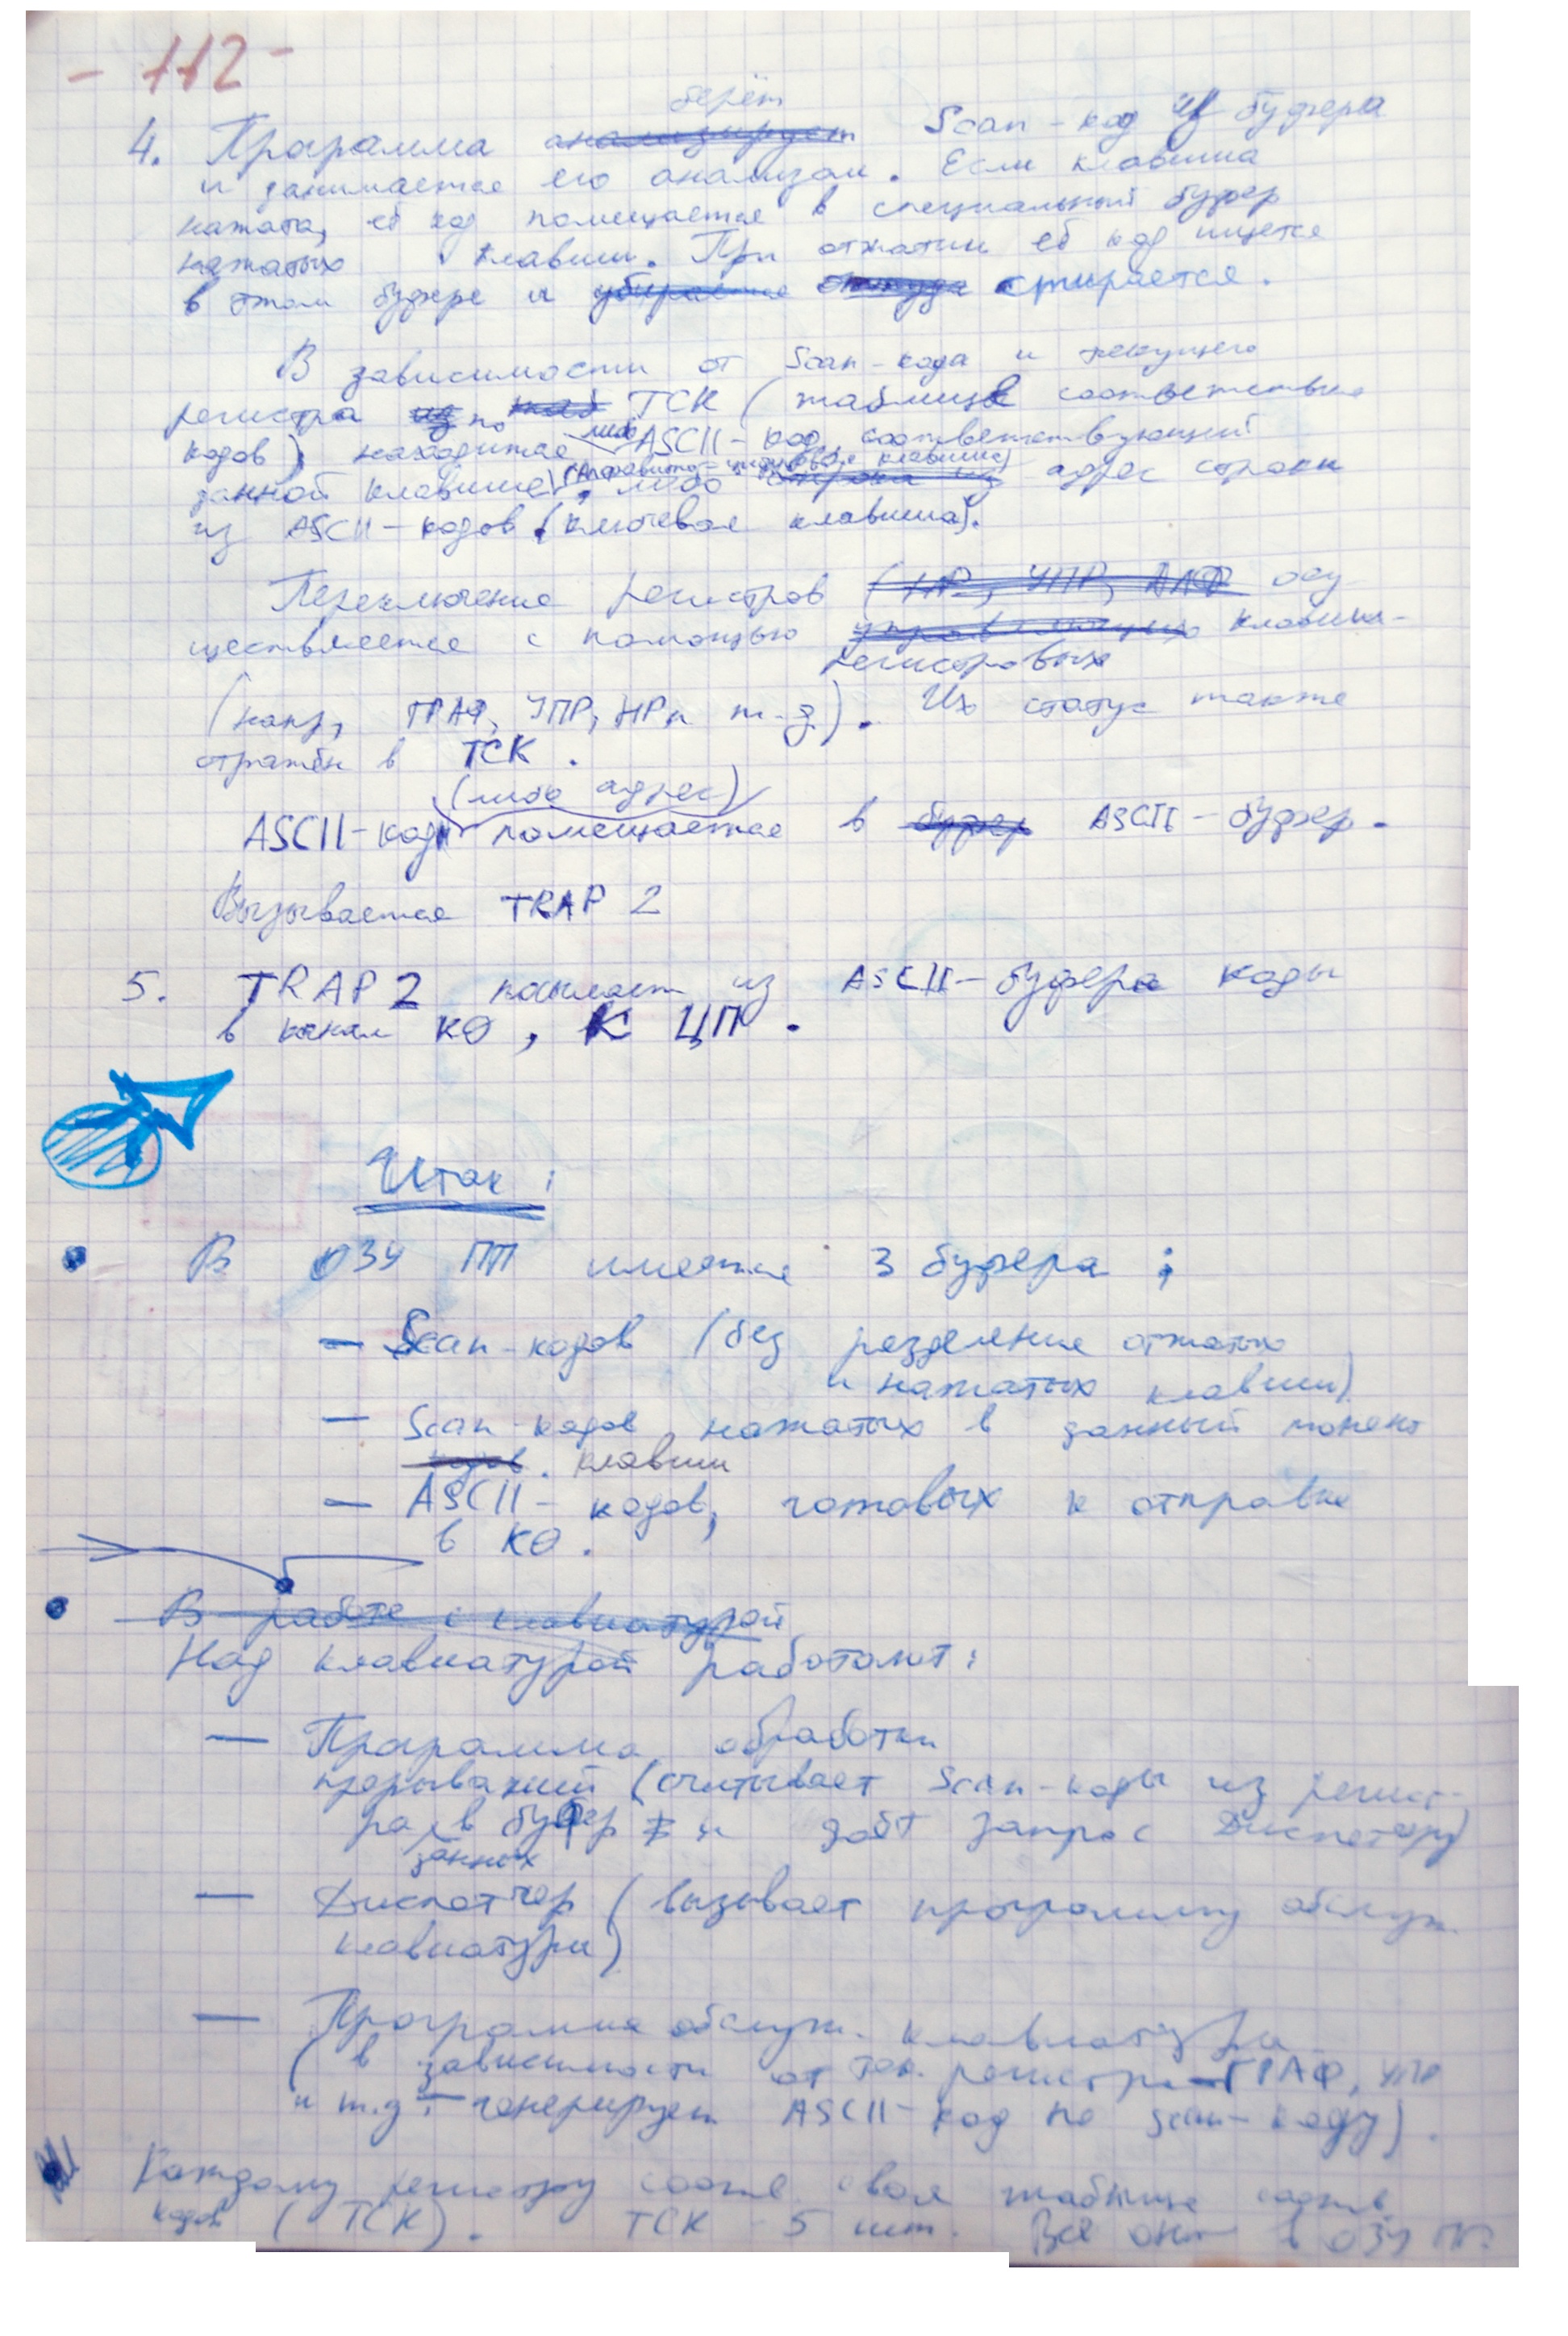 - 112 -
берёт
4. Программа анализирует Scan-код из буфера
и занимается его анализом. Если клавиша
нажата, её код помещается в специальный буфер
нажатых клавиш. При отжатии её код ищется
в этом буфере и убирается оттуда стирается.
В зависимости от Scan-кода и текущего
регистра из по таб ТСК (таблице соответствия
кодов) находится либо ASCII-код, соответствующий
(Алфавитно-цифровые клавиши)
данной клавише, либо строка из адрес строки
из ASCII-кодов (ключевая клавиша).
Переключение регистров (НР, УПР, АЛФ осу
ществляется с помощью управляющих клавиш -
регистровых
(напр, ГРАФ, УПР, НР и т.д). Их статус также
отражён в ТСК.
(либо адрес)
ASCII-код помещается в буфер ASCII-буфер.
Вызывается TRAP 2
5. TRAP 2 посылает из ASCII-буфера коды
в канал К0, к ЦП.
Итак:
В ОЗУ ПП имеется 3 буфера:
— Scan-кодов (без разделения отжатых
и нажатых клавиш)
— Scan-кодов нажатых в данный момент
кодов. клавиш
— ASCII-кодов, готовых к отправке
в К0.
В работе с клавиатурой
Над клавиатурой работают:
— Программа обработки
прерываний (считывает Scan-коды из регист-
ра в буфер и даёт запрос Диспетчеру)
данных
— Диспетчер (вызывает программу обслуж.
клавиатуры)
— Программа обслуж. клавиатуры
(в зависимости от тек. регистра - ГРАФ, УПР
и т.д. - генерирует ASCII-код по scan-коду).
Каждому регистру соотв. своя таблица соотв.
кодов (ТСК). ТСК - 5 шт. Все они в ОЗУ ПП.